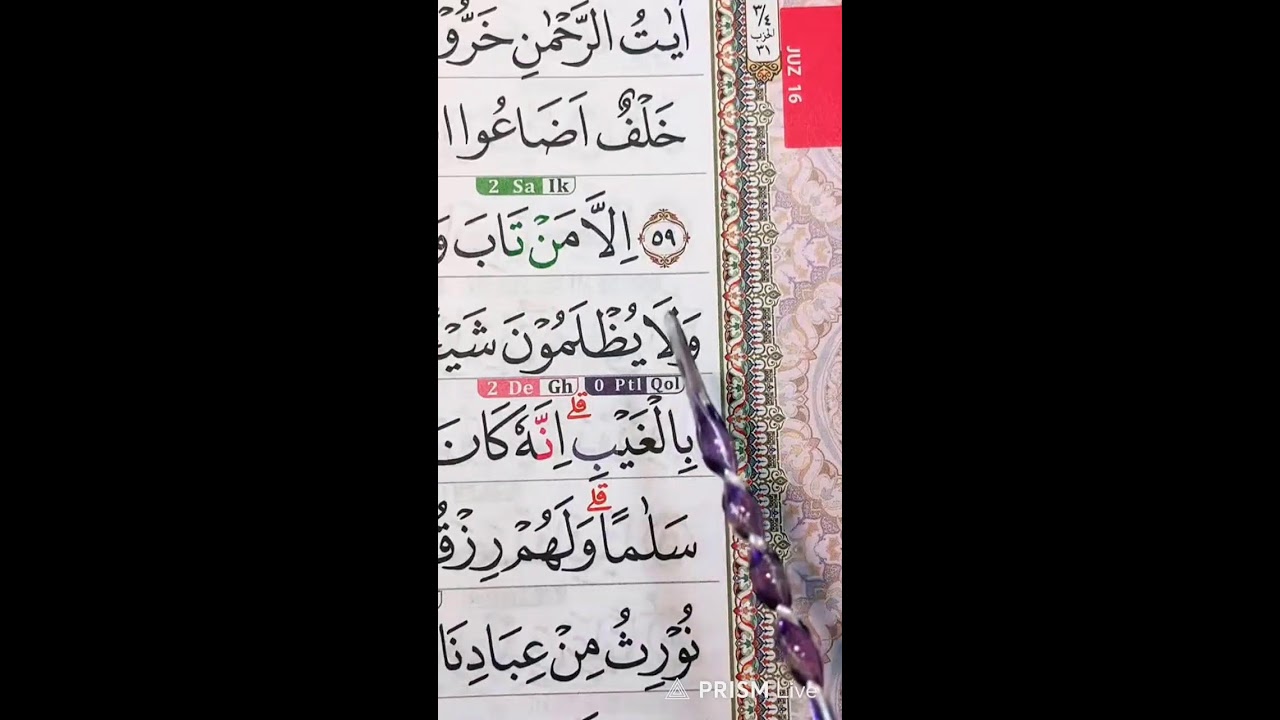 اٰيٰتُ الرَّحْمٰنِ خَرُّوْ
خَلْفٌ اَضَاعُوا ا
2 Sa Ik
٥٩ اِلَّا مَنْ تَابَ وَ
وَلَا يُظْلَمُوْنَ شَيْـ
2 De Gh 0 Ptl Qol
بِالْغَيْبِۗ اِنَّهٗ كَانَ
سَلٰمًاۗ وَلَهُمْ رِزْقُ
نُوْرِثُ مِنْ عِبَادِنَا
٣/٤
الحزب
٣١
JUZ 16
PRISM Live